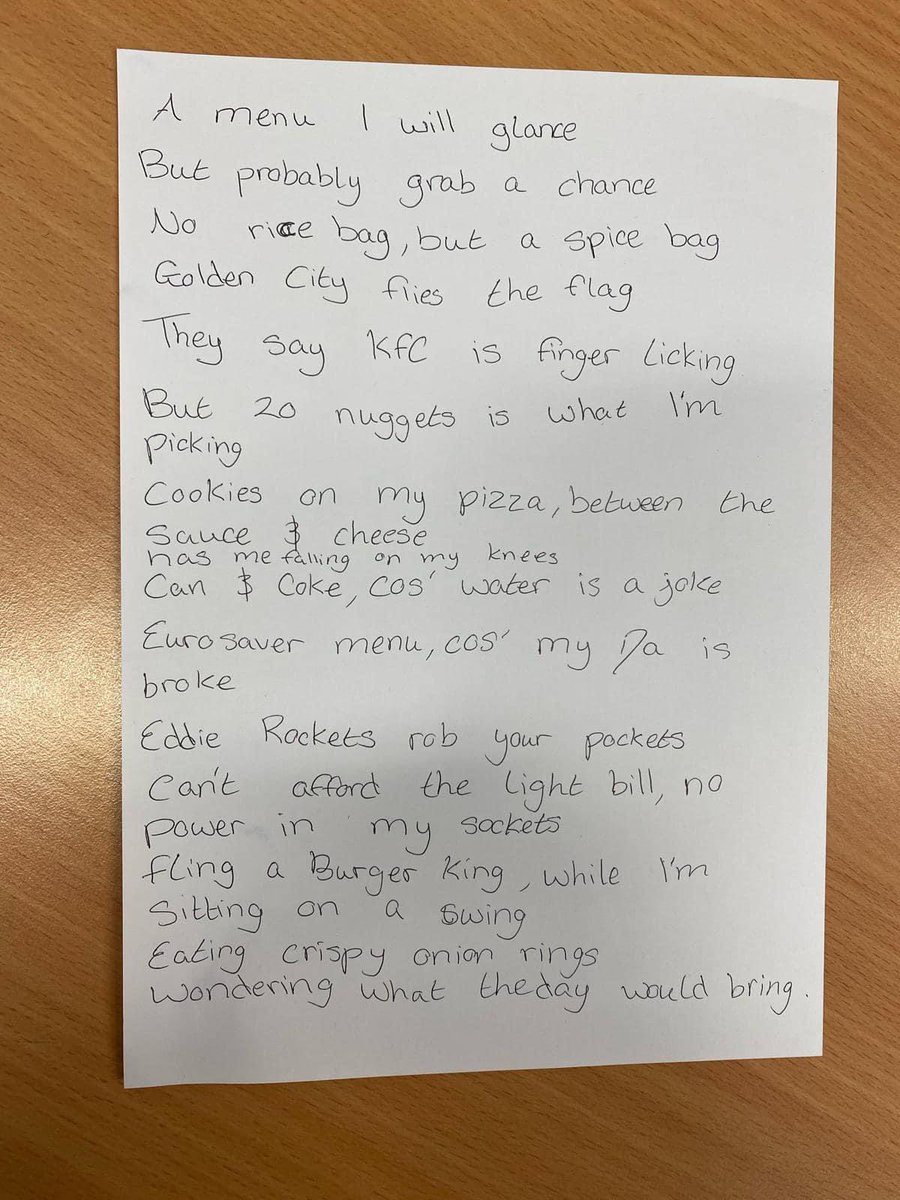 A menu I will glance
But probably grab a chance
No rice bag, but a spice bag
Golden City flies the flag
They say KFC is finger licking
But 20 nuggets is what I'm
picking
Cookies on my pizza, between the
sauce & cheese
has me falling on my knees
Can & Coke, cos' water is a joke
Eurosaver menu, cos' my Da is
broke
Eddie Rockets rob your pockets
Can't afford the light bill, no
power in my sockets
fling a Burger King, while I'm
Sitting on a swing
Eating crispy onion rings
Wondering what the day would bring.